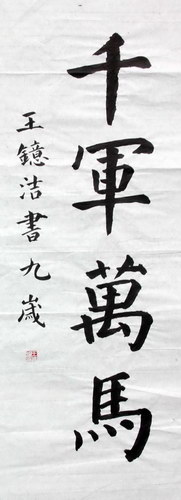 千軍萬馬
王鐿洁書九歲